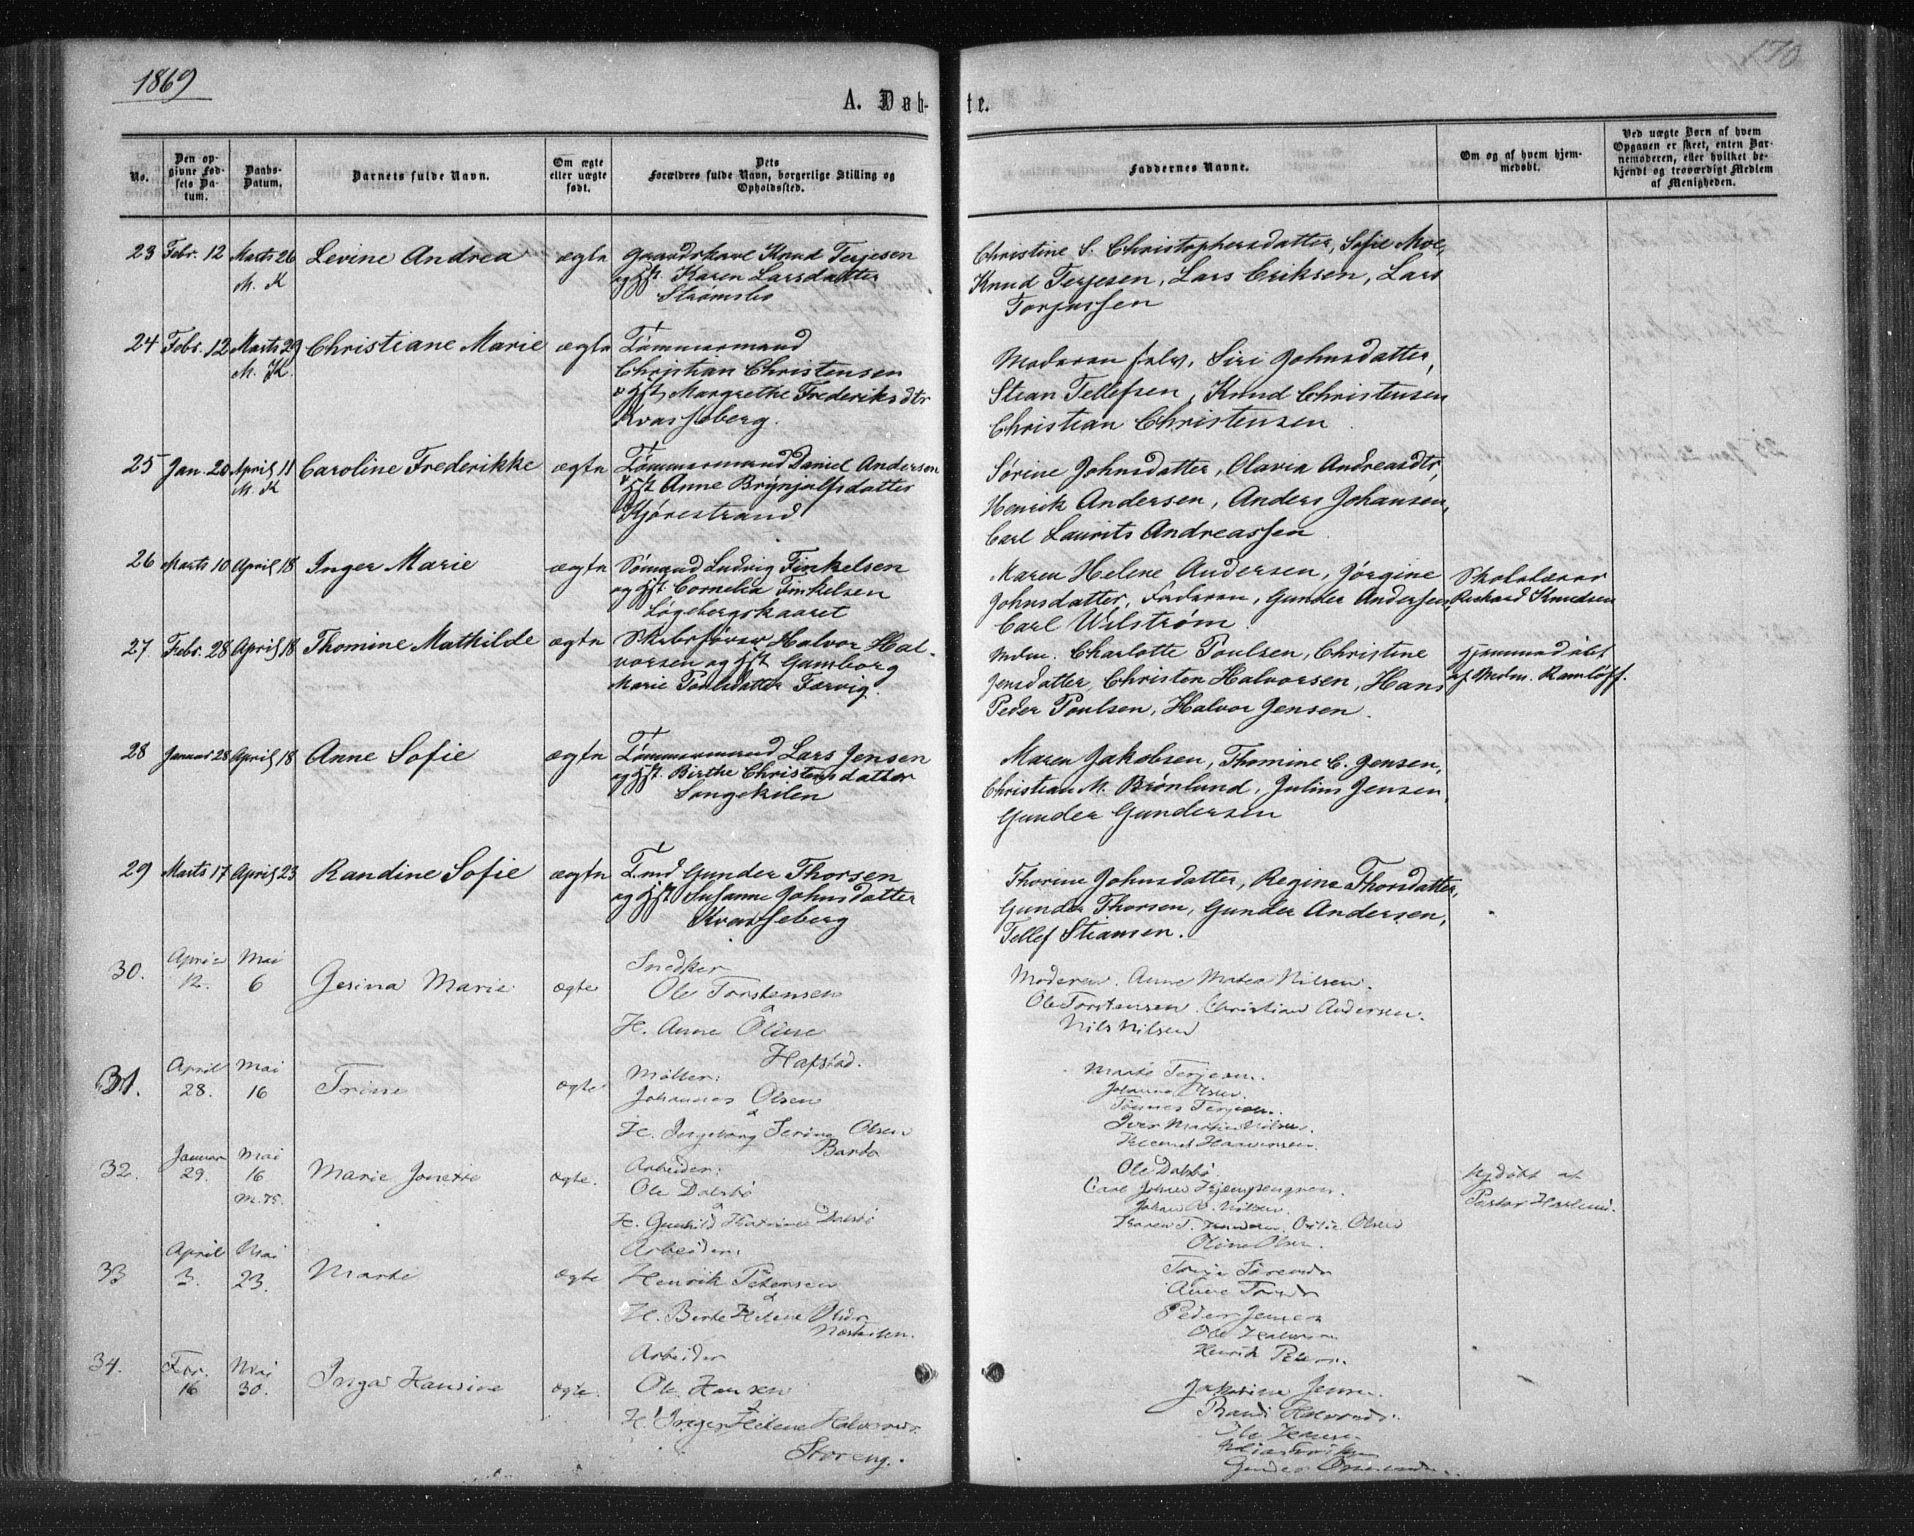 1869
170
A. Døb-
te.
No.
Den op-
givne Fød-
sels Da-
tum.
Daabs-
Datum.
Barnets fulde Navn.
Om ægte
eller uægte
født.
Dets
Forældres fulde Navn, borgerlige Stilling og
Opholdssted.
Faddernes Navne.
Om og af hvem hjem-
medøbt.
Ved uægte Børn af hvem
Opgaven er skeet, enten Bar-
nemoderen, eller hvilket be-
kjendt og troværdigt Medlem
af Menigheden.
23 Febr. 12 Marts 26 Levine Andrea ægte Gaardskarl Knud Terjesen
M. K og Hst. Karen Larsdatter
Strømsbo
Christine S. Christophersdatter, Sofie Moe,
Knud Terjesen, Lars Eriksen, Lars
Torjussen
24 Febr. 12 Marts 29 Christiane Marie ægte Tømmermand
M. K. Christian Christensen
og Hst. Margrethe Frederiksdtr
Kvasseberg.
Moderen selv, Siri Johnsdatter,
Stean Tellefsen, Knud Christensen
Christian Christensen
25 Jan. 20 April 11 Caroline Frederikke ægte Tømmermand Daniel Andersen
M. K Hst Anne Brynjulfsdatter
Kjørestrand
Sørine Johnsdatter, Olavia Andreasdtr,
Henrik Andersen, Anders Johansen,
Carl Laurits Andreassen
26 Marts 10 April 18 Inger Marie ægte Sømand Ludvig Finkelsen
og Hst. Cornelia Finkelsen
Løgebergskaaret
Maren Helene Andersen, Jørgine
Johnsdatter, Faderen, Gunder Andersen,
Carl Wilstrøm.
Skolelærer
Richard Knudsen
27 Febr. 28 April 18 Thomine Mathilde ægte Skibsfører Halvor Hal-
vorsen og Hst. Gamborg
Marie Poulsdatter Færvig.
Mdm. Charlotte Poulsen, Christine
Jensdatter, Christen Halvorsen, Hans
Peder Poulsen, Halvor Jensen.
Hjemmedøbt
af Mdm. Ramløff.
28 Januar 28 April 18 Anne Sofie ægte Tømmermand Lars Jensen
og Hst. Birthe Christensdatter
Songekilen
Maren Jakobsen, Thomine C. Jensen,
Christian M. Brønlund, Julius Jensen,
Gunder Gundersen
29 Marts 17 April 23 Randine Sofie ægte T.md Gunder Thorsen
og Hst Susanne Johnsdatter
Kvasseberg
Thorine Johnsdatter, Regine Thorsdatter,
Gunder Thorsen, Gunder Andersen,
Tellef Steansen.
30. April 12. Mai 6 Gesina Marie ægte Snedker
Ole Torstensen
&
H. Anne Oline
Hafstad.
Moderen. Anne Matea Nilsen.
Ole Torstensen. Christian Andersen.
Nils Nilsen
31. April 28. Mai 16 Trine ægte Møller:
Johannes Olsen
&
H. Ingeborg Serine Olsen
Barbo
Marte Terjesen.
Johanne Olsen.
Tønnes Terjesen.
Iver Martin Nilsen.
32. Januar 29. Mai 16 Marie Jonette ægte. Arbeider:
Ole Dalsbø
&
H. Gunhild Katrine Dalsbø
Ole Dalsbø
Carl Johan
Johan A. Nilsen.
Olsen
Oline Olsen.
Hjdøbt af
Pastor
33 April 3. Mai 23. Marte ægte Arbeider:
Henrik Petersen
&
H. Berte Helene
Peder Jensen
Ole
Henrik Peters.
34. Febr. 16 Mai 30. Inga Hansine ægte. Arbeider
Ole Hansen
&
H. Inger Helene Halvorsd.
Storeng.
Jakobine Jensen.
Randi Halvorsd.
Ole Hansen
Gunder